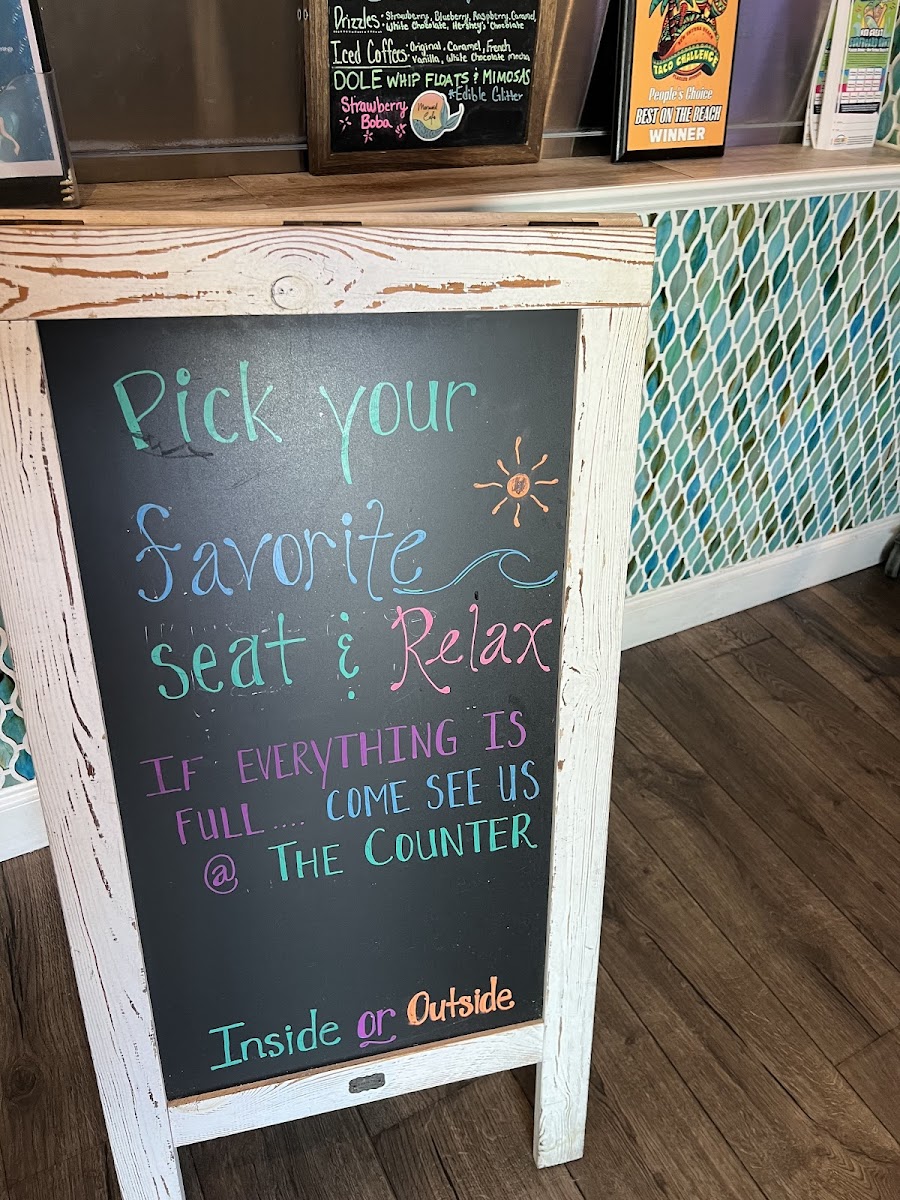 Drizzles: Strawberry, Blueberry, Raspberry, Caramel,
White Chocolate, Hershey's Chocolate
Iced Coffees: Original, Caramel, French
Vanilla, White Chocolate mocha
DOLE WHIP FLOATS & MIMOSAS
*Edible Glitter
Strawberry
Boba
Mermaid
Cafe
TACO CHALLENGE
People's Choice
BEST ON THE BEACH
WINNER
Pick your
favorite
seat & Relax
IF EVERYTHING IS
FULL.... COME SEE US
@ THE COUNTER
Inside or Outside